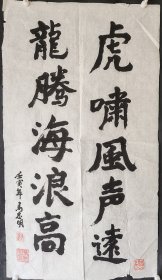 虎啸風声遠
龍騰海浪高
壬寅年